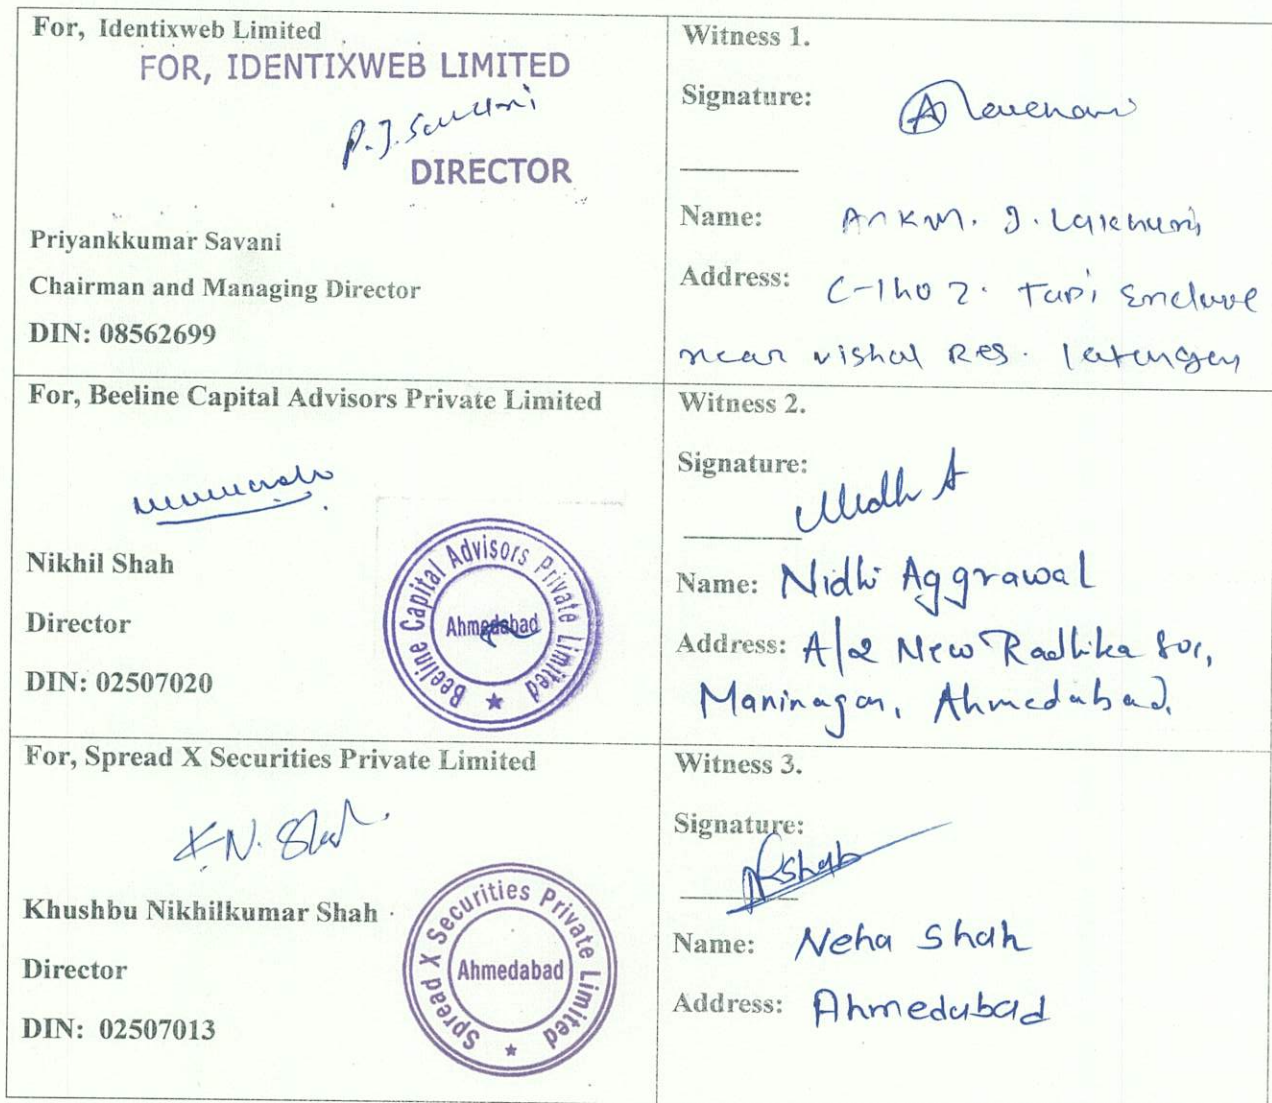 For, Identixweb Limited
FOR, IDENTIXWEB LIMITED
P.J. Savani
DIRECTOR
Priyankkumar Savani
Chairman and Managing Director
DIN: 08562699
Witness 1.
Signature:
Name:
Address: C-1402. Tapi Enclave
near vishal Res.
For, Beeline Capital Advisors Private Limited
Nikhil Shah
Director
DIN: 02507020
Beeline Capital Advisors Private Limited
Ahmedabad
Witness 2.
Signature:
Name: Nidhi Aggrawal
Address: A/2 New Radhika Soc,
Maninagar, Ahmedabad.
For, Spread X Securities Private Limited
K.N. Shah
Khushbu Nikhilkumar Shah
Director
DIN: 02507013
Spread X Securities Private Limited
Ahmedabad
Witness 3.
Signature:
Name: Neha Shah
Address: Ahmedabad